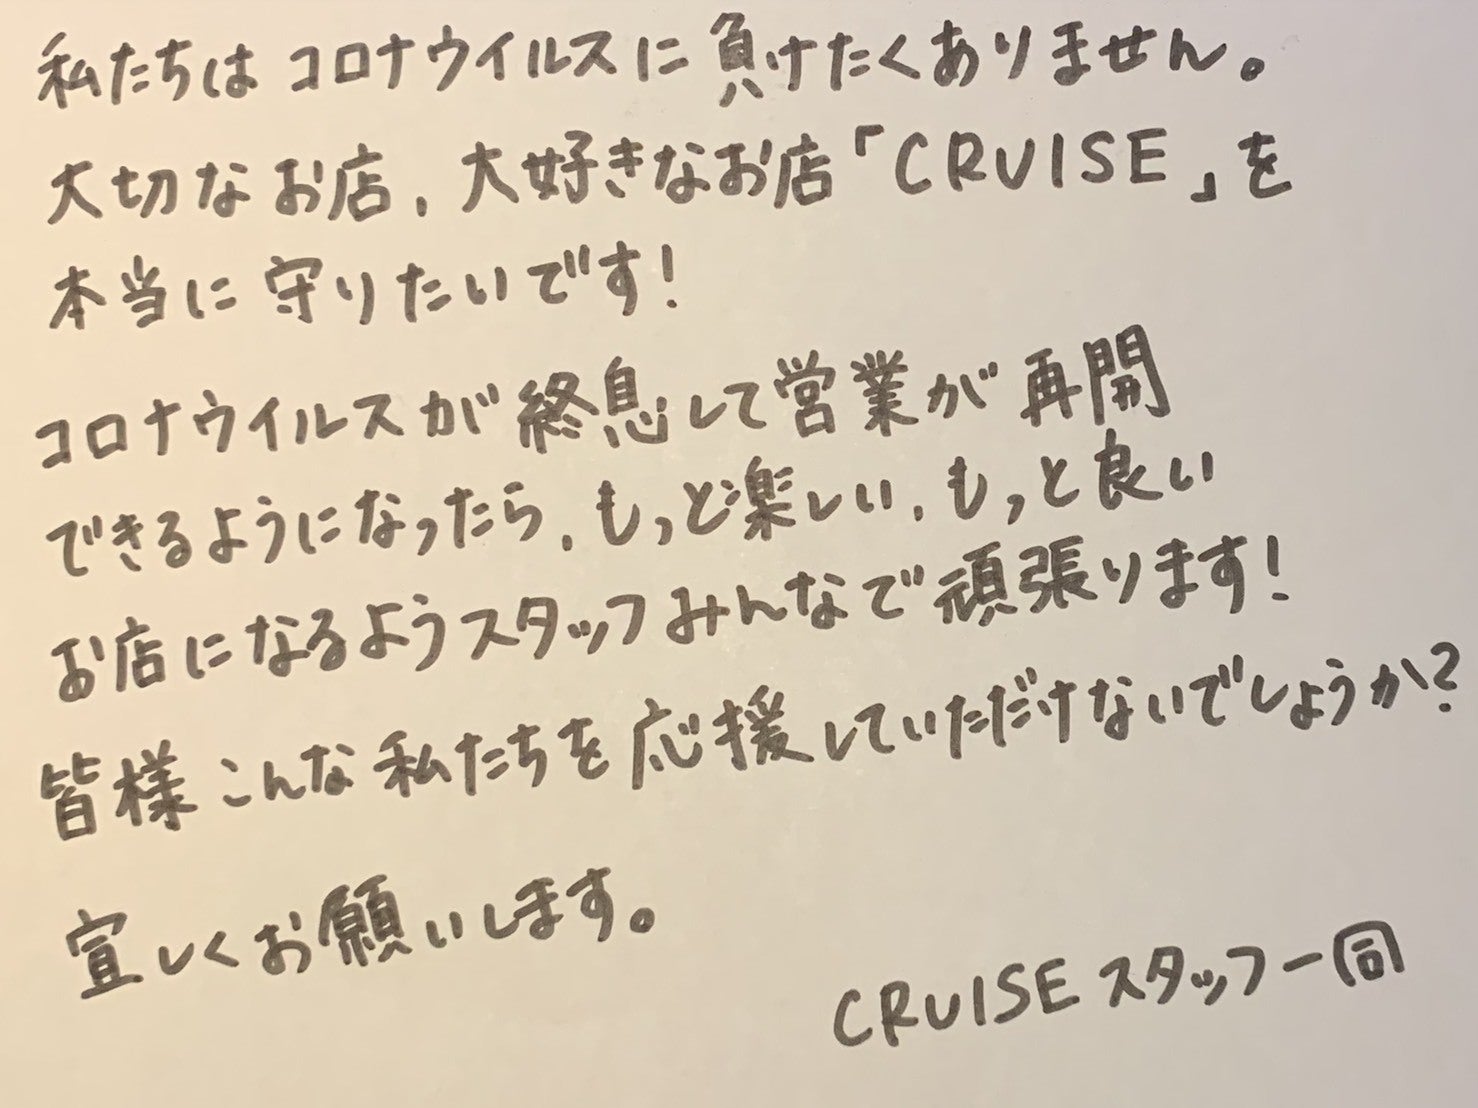 私たちはコロナウイルスに負けたくありません。
大切なお店、大好きなお店「CRUISE」を
本当に守りたいです!
コロナウイルスが終息して営業が再開
できるようになったら、もっと楽しい、もっと良い
お店になるようスタッフみんなで頑張ります!
皆様こんな私たちを応援していただけないでしょうか?
宜しくお願いします。
CRUISEスタッフ一同